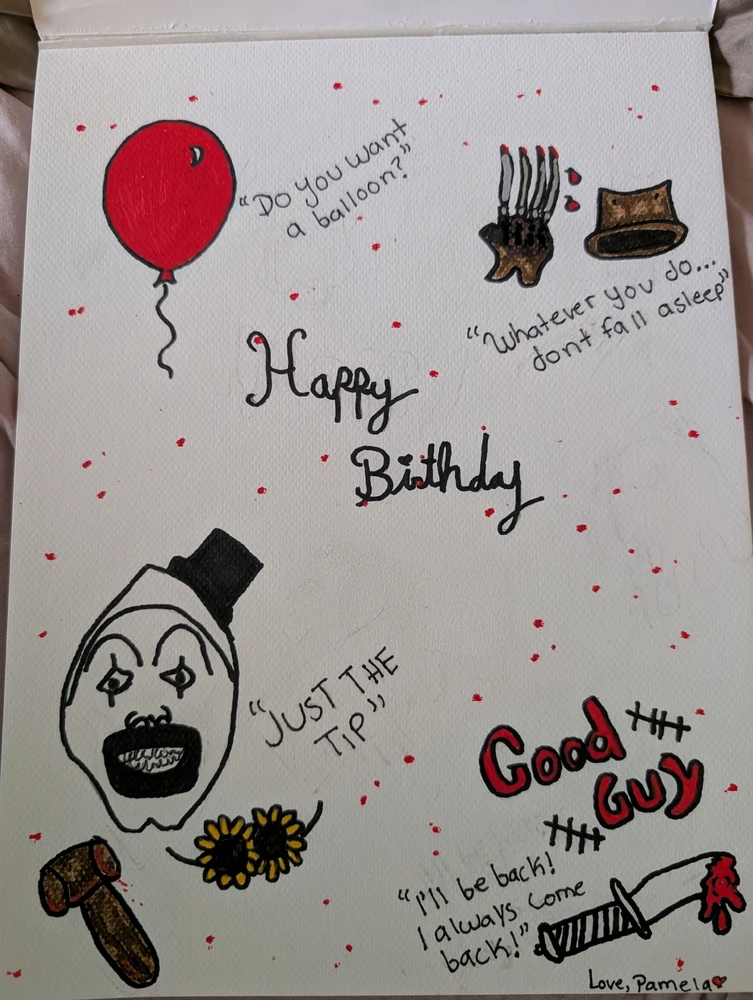 "Do you want
a balloon?"
"Whatever you do...
dont fall asleep"
Happy
Birthday
"JUST THE
TIP"
Good
GUY
"I'll be back!
I always come
back!"
Love, Pamela